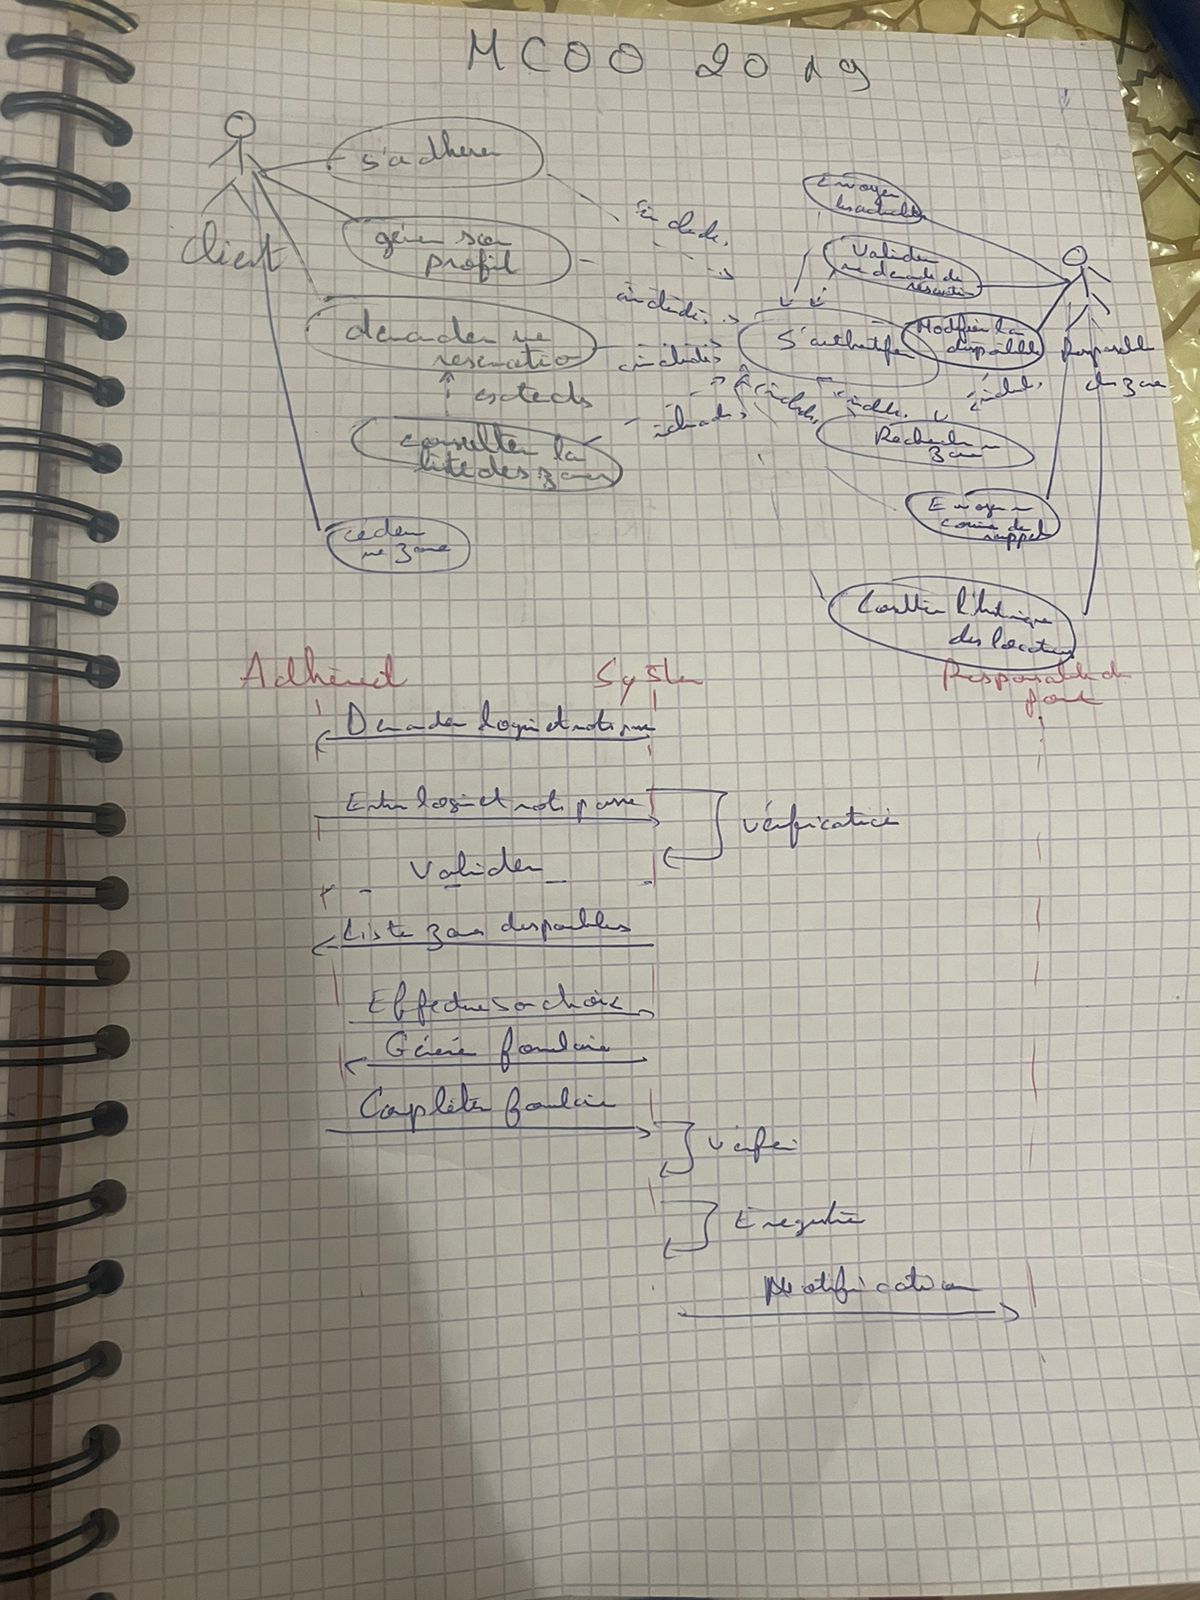 MCOO 2019
s'adherer
client
gérer son
profil
demander une
reservation
extends
consulter la
liste des zones
ceder
une zone
include
include
include
include
Envoyer
Valider
une demande de
reservation
S'authentifier
Modifier la
Responsable
des zones
include
include
include
Recherche
zone
Envoyer un
courrier de
rappel
des locations
Adhérent
System
Responsable de
Demander login et mots passe
Entrer login et mots passe
Vérification
Valider
Liste zones disponibles
Effectue son choix
Génère formulaire
Compléter formulaire
Vérifier
Enregistre
Notification